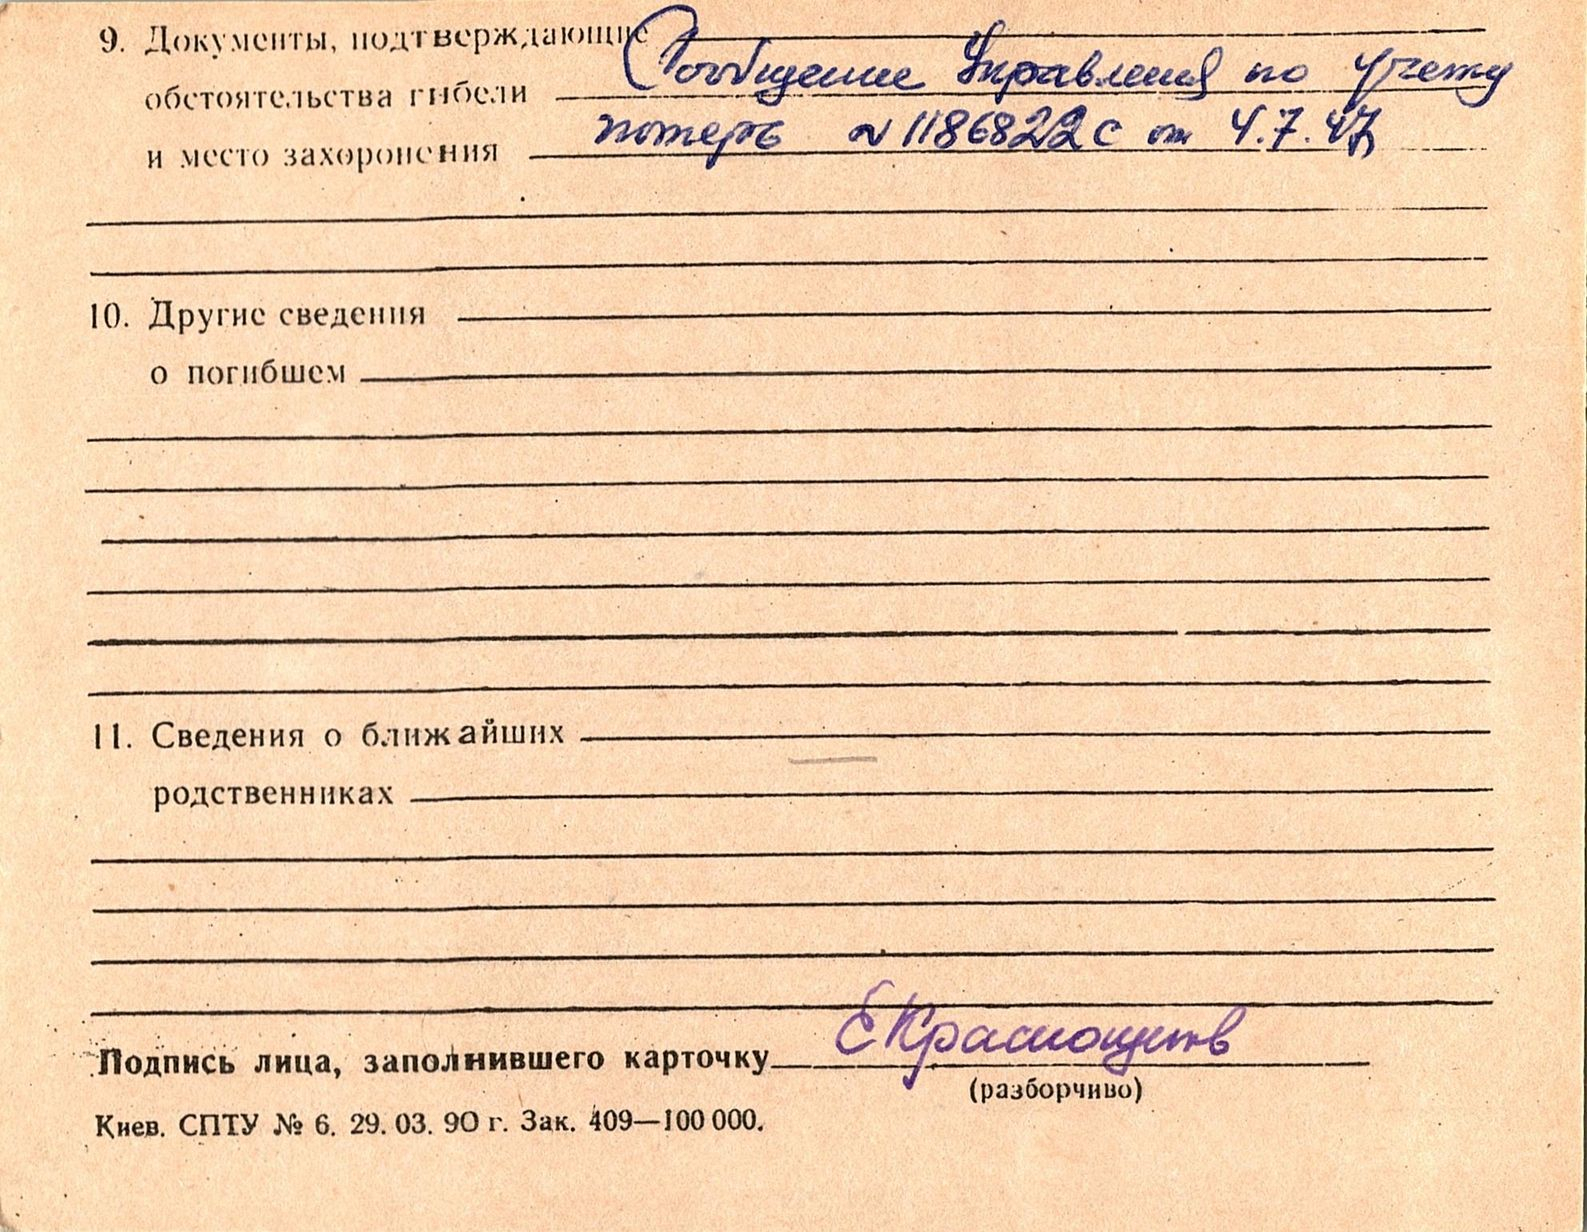 9. Документы, подтверждающие
Сообщение Управления по учету
обстоятельства гибели
потерь № 1186822с от 4.7.47
и место захоронения
10. Другие сведения
о погибшем
11. Сведения о ближайших
родственниках
Подпись лица, заполнившего карточку
(разборчиво)
Киев. СПТУ № 6. 29. 03. 90 г. Зак. 409—100 000.